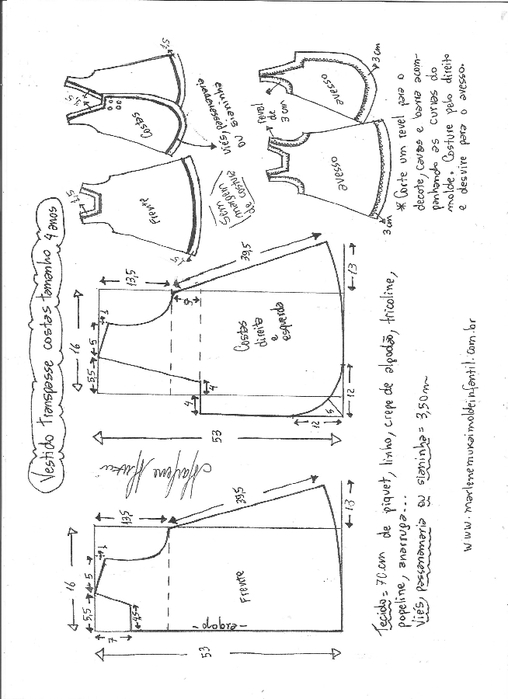 Vestido Transpasse costas tamanho 4 anos
1,5
3,5
Costas
viés, passanamaria
ou sianinha
1,5
Frente
1,5
Sem
margem
de costura
3 cm
avesso
revel
de
3 cm
avesso
3 cm
* Corte um revel para o
decote, cavas e barra acom-
panhando as curvas do
molde. Costure pelo direito
e desvire para o avesso.
16
5,5
5
1
13,5
39,5
6
Costas
direita
e
esquerda
4
4
53
12
12
5
13
16
5,5
5
1
13,5
39,5
7
4,5
Frente
dobra
53
13
Tecido = 70cm de piquet, linho, crepe de algodão, tricoline,
popeline, anarruga...
Viés, passanamaria ou sianinha = 3,50m
www.marlenemukaimoldeinfantil.com.br